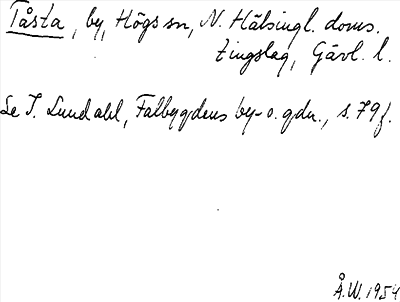 Tåsta, by, Högs sn, N. Hälsingl. doms.
tingslag, Gävl. l.
Se I. Lundahl, Falbygdens by- o. gdn., s. 79 f.
Å.W. 1954